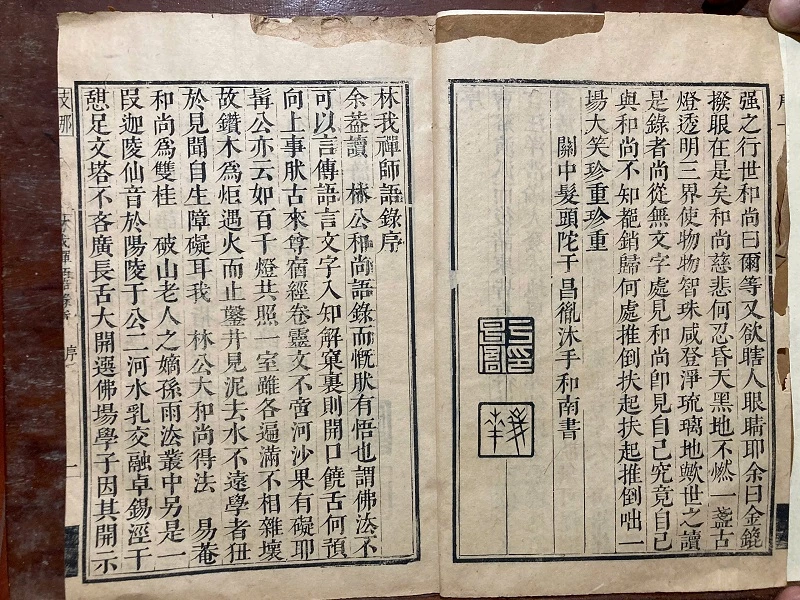 强之行世和尚曰爾等又欲瞎人眼睛耶余曰金錍
撥眼在是矣和尚慈悲何忍昏天黑地不燃一盞古
燈透明三界使物物智珠咸登淨琉璃地歟世之讀
是錄者尚從無文字處見和尚卽見自己究竟自己
與和尚不知都銷歸何處推倒扶起扶起推倒咄一
場大笑珍重珍重
關中髮頭陀于昌胤沐手和南書
林我禪師語錄序
余葢讀林公和尚語錄而慨肰有悟也謂佛法不
可以言傳語言文字入知解窠裏則開口饒舌何預
向上事肰古來尊宿經卷靈文不啻河沙果有礙耶
昔公亦云如百千燈共照一室雖各遍滿不相雜壞
故鑽木爲炬遇火而止鑿井見泥去水不遠學者徃
於見聞自生障礙耳我林公大和尚得法易菴
和尚爲雙桂破山老人之嫡孫雨法叢中另是一
叚迦陵仙音於陽陵于公二河水乳交融卓錫涇干
憇足文塔不吝廣長舌大開選佛場學子因其開示
支那
林我禪師語錄
序
一